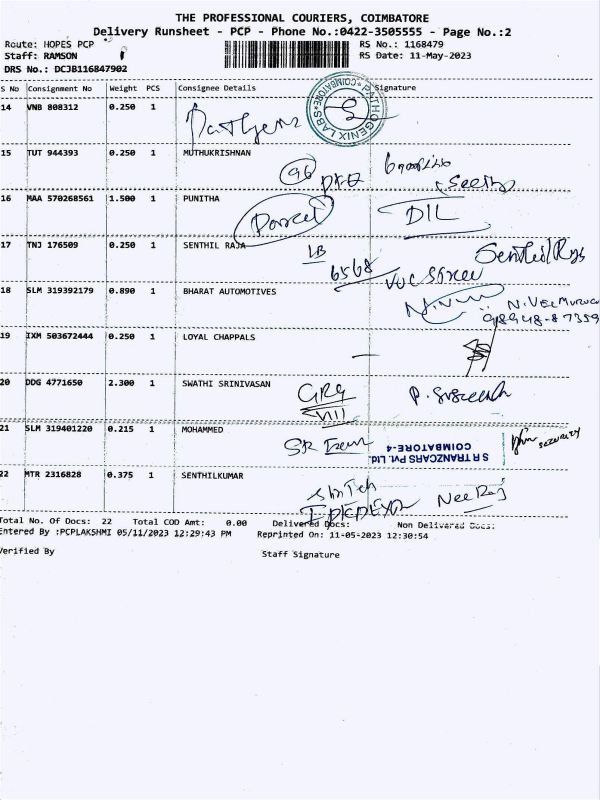 THE PROFESSIONAL COURIERS, COIMBATORE
Delivery Runsheet - PCP - Phone No.:0422-3505555 - Page No.:2
Route: HOPES PCP
RS No.: 1168479
Staff: RAMSON
RS Date: 11-May-2023
DRS No.: DCJB116847902
S No Consignment No Weight PCS Consignee Details Signature
14 VNB 808312 0.250 1
PATHOGENIX LABS COIMBATORE
15 TUT 944393 0.250 1 MUTHUKRISHNAN
96
16 MAA 570268561 1.500 1 PUNITHA
Parcel DIL
17 TNJ 176509 0.250 1 SENTHIL RAJA
LB
6568 VOC Street
18 SLM 319392179 0.890 1 BHARAT AUTOMOTIVES
19 IXM 503672444 0.250 1 LOYAL CHAPPALS
20 DDG 4771650 2.300 1 SWATHI SRINIVASAN
GRG
VIII
21 SLM 319401220 0.215 1 MOHAMMED
S R TRANZCARS Pvt. Ltd.
COIMBATORE-4
SECURITY
22 MTR 2316828 0.375 1 SENTHILKUMAR
Neeraj
Total No. Of Docs: 22 Total COD Amt: 0.00 Delivered Docs: Non Delivered Docs:
Entered By :PCPLAKSHMI 05/11/2023 12:29:43 PM Reprinted On: 11-05-2023 12:30:54
Verified By
Staff Signature